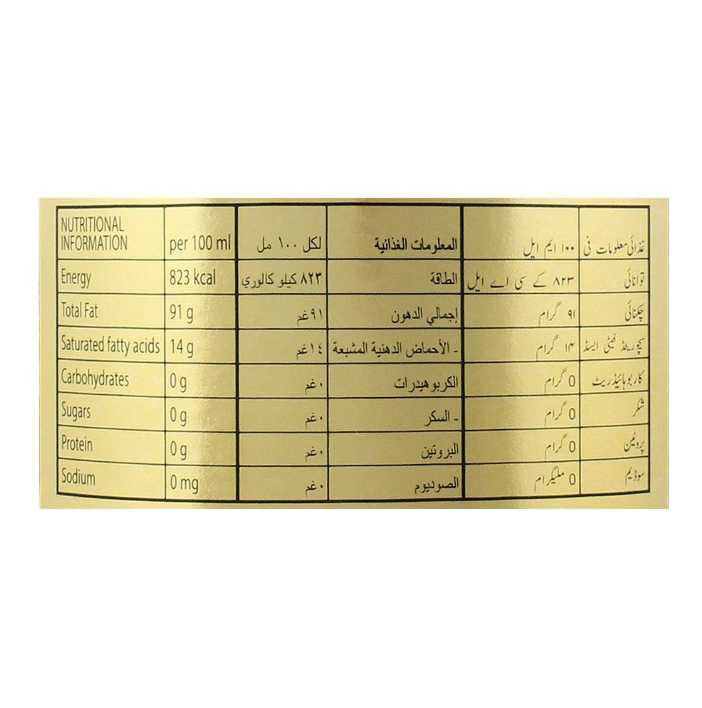 NUTRITIONAL
INFORMATION per 100 ml لكل ١٠٠ مل المعلومات الغذائية ١٠٠ ایم ایل غذائی معلومات فی
Energy 823 kcal ٨٢٣ كيلو كالوري الطاقة ۸۲۳ کے سی اے ایل توانائی
Total Fat 91 g ٩١غم إجمالي الدهون ۹۱ گرام چکنائی
Saturated fatty acids 14 g ١٤غم - الأحماض الدهنية المشبعة ۱۴ گرام سچوریٹڈ فیٹی ایسڈ
Carbohydrates 0 g ٠غم الكربوهيدرات 0 گرام کاربوہائیڈریٹ
Sugars 0 g ٠غم - السكر 0 گرام شکر
Protein 0 g ٠غم البروتين 0 گرام پروٹین
Sodium 0 mg ٠غم الصوديوم 0 ملیگرام سوڈیم